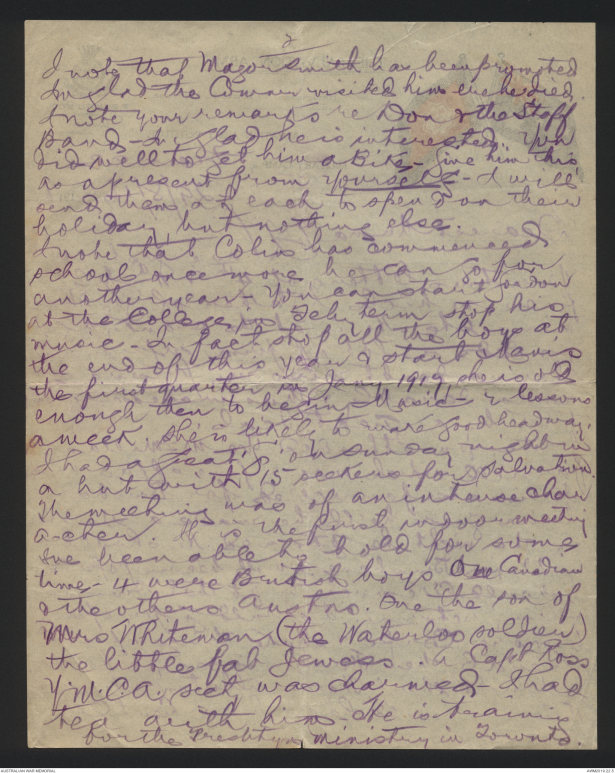 2
I note that Major Smith has been promoted
Im glad the Commr visited him ere he died.
I note your remarks re Don & the Staff
Band - Im glad he is interested. You
did well to get him a Bike - Give him this
as a present from yourself - I will
send them at each to spend on their
holiday, but nothing else.
I note that Colin has commenced
school once more he can go for
another year - You can start Don
at the College in Feby term stop his
music - In fact stop all the boys at
the end of this year & start Mavis
the first quarter in Jany 1919, she is old
enough then to begin Music - 2 lessons
a week. She is likely to make good headway.
I had a great go on Sunday night in
a hut with 15 seekers for Salvation.
The meeting was of an intense char
-acter. It is the first indoor meeting
Ive been able to hold for some
time - 4 were British boys One Canadian
& the others Austns. One the son of
Mrs Whiteman (the Waterloo soldier)
the little fat Jewess. A Capt Ross
Y.M.C.A. sect was charmed - I had
tea with him. He is training
for the Presbytn ministry in Toronto.
AUSTRALIAN WAR MEMORIAL